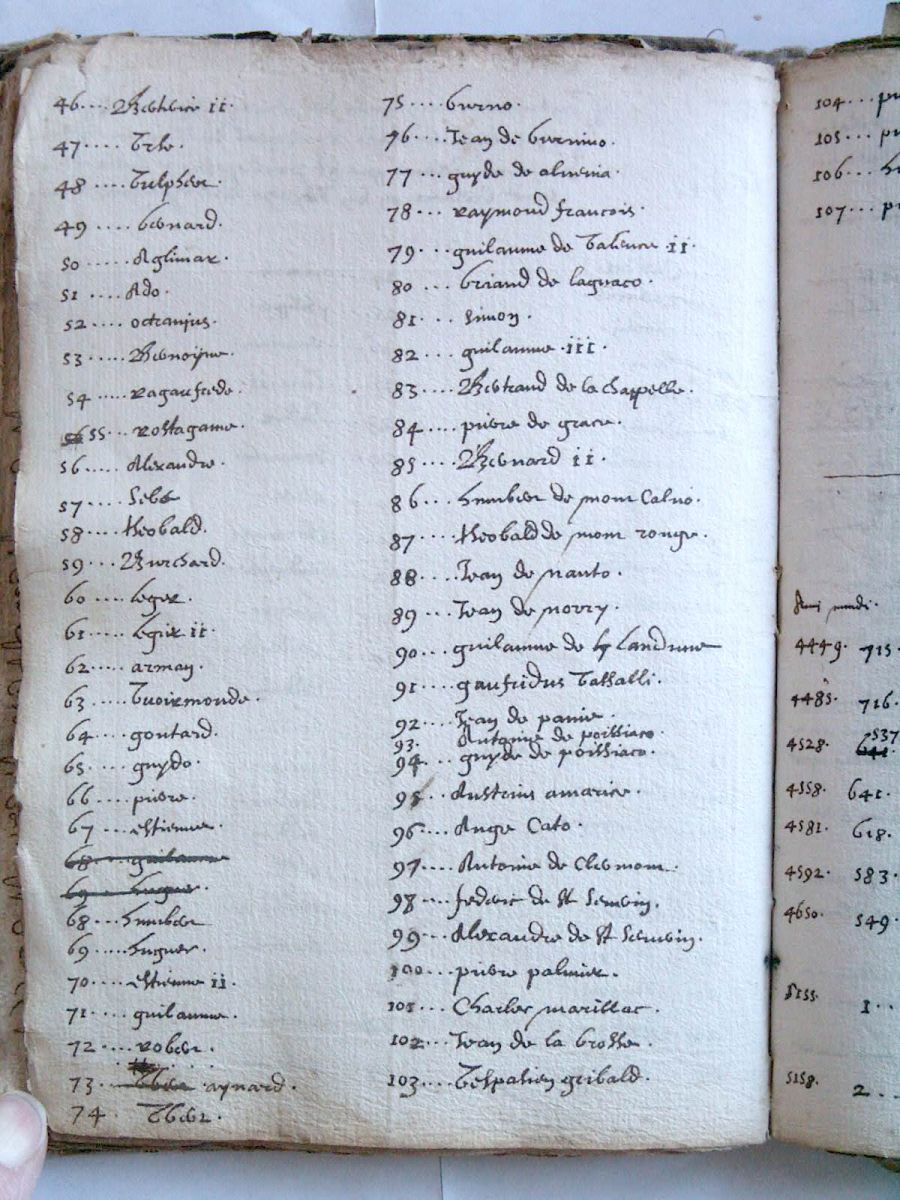 46.... Berterie ii.
47.... Brle.
48.... Bulpher.
49.... bernard.
50.... Aglimar.
51.... Ado.
52.... octranius.
53..... Bernoijne.
54..... ragaufrede.
55... rostagame.
56..... Alexandre.
57.... Sebe
58.... theobald.
59... Burchard.
60.... leger.
61.... leger ii.
62..... arman.
63.... Buoirmonde.
64.... gontard.
65.... guydo.
66.... pierre.
67.... estienne.
68... guilaume
69... hugue.
68... humber
69.... hugues.
70.... estienne ii.
71.... guilaume.
72.... rober.
73 aynard.
74. Iber.
75.... burno.
76.... Jean de burnino.
77... guyde de aluernia.
78... raymond francois.
79... guilaume de Balence ii.
80... briand de lagnaco.
81... simon.
82... guilaume .iii.
83.... Bertrand de la chappelle.
84... pierre de grace.
85... Bernard ii.
86... humber de mom Calno.
87... theobald de mom rouge.
88... Jean de nanto.
89... Jean de norry.
90... guilaume de Landune
91.... gaufridus Bassalli.
92.... Jean de panie.
93. Antonie de poissiaco.
94... guyde de poissiaco.
95... Austrius amarice.
96... Ange Cato.
97.... Antonie de Clermom.
98... federic de St Seruein.
99... Alexandre de St Seruein.
100... pierre palmier.
101... Charles marillac.
102... Jean de la brosse.
103.... Bespasien gribald.
104... pi
105... pi
106...
107... pi
Anni mundi.
4449. 715.
4485. 716.
4528. 537
4558. 641.
4581. 618.
4592. 583.
4650. 549.
5155. 1..
5158. 2...